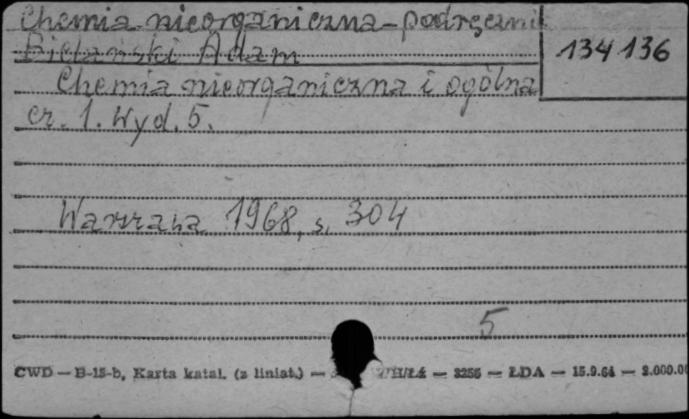 Chemia nieorganiczna - podręcznik
134 136
Bielański Adam
Chemia nieorganiczna i ogólna
cz. 1. Wyd. 5.
Warszawa 1968, s. 304
5
CWD — B-15-b, Karta katal. (z liniat.) — 3256 — ŁDA — 15.9.64 — 3.000.00